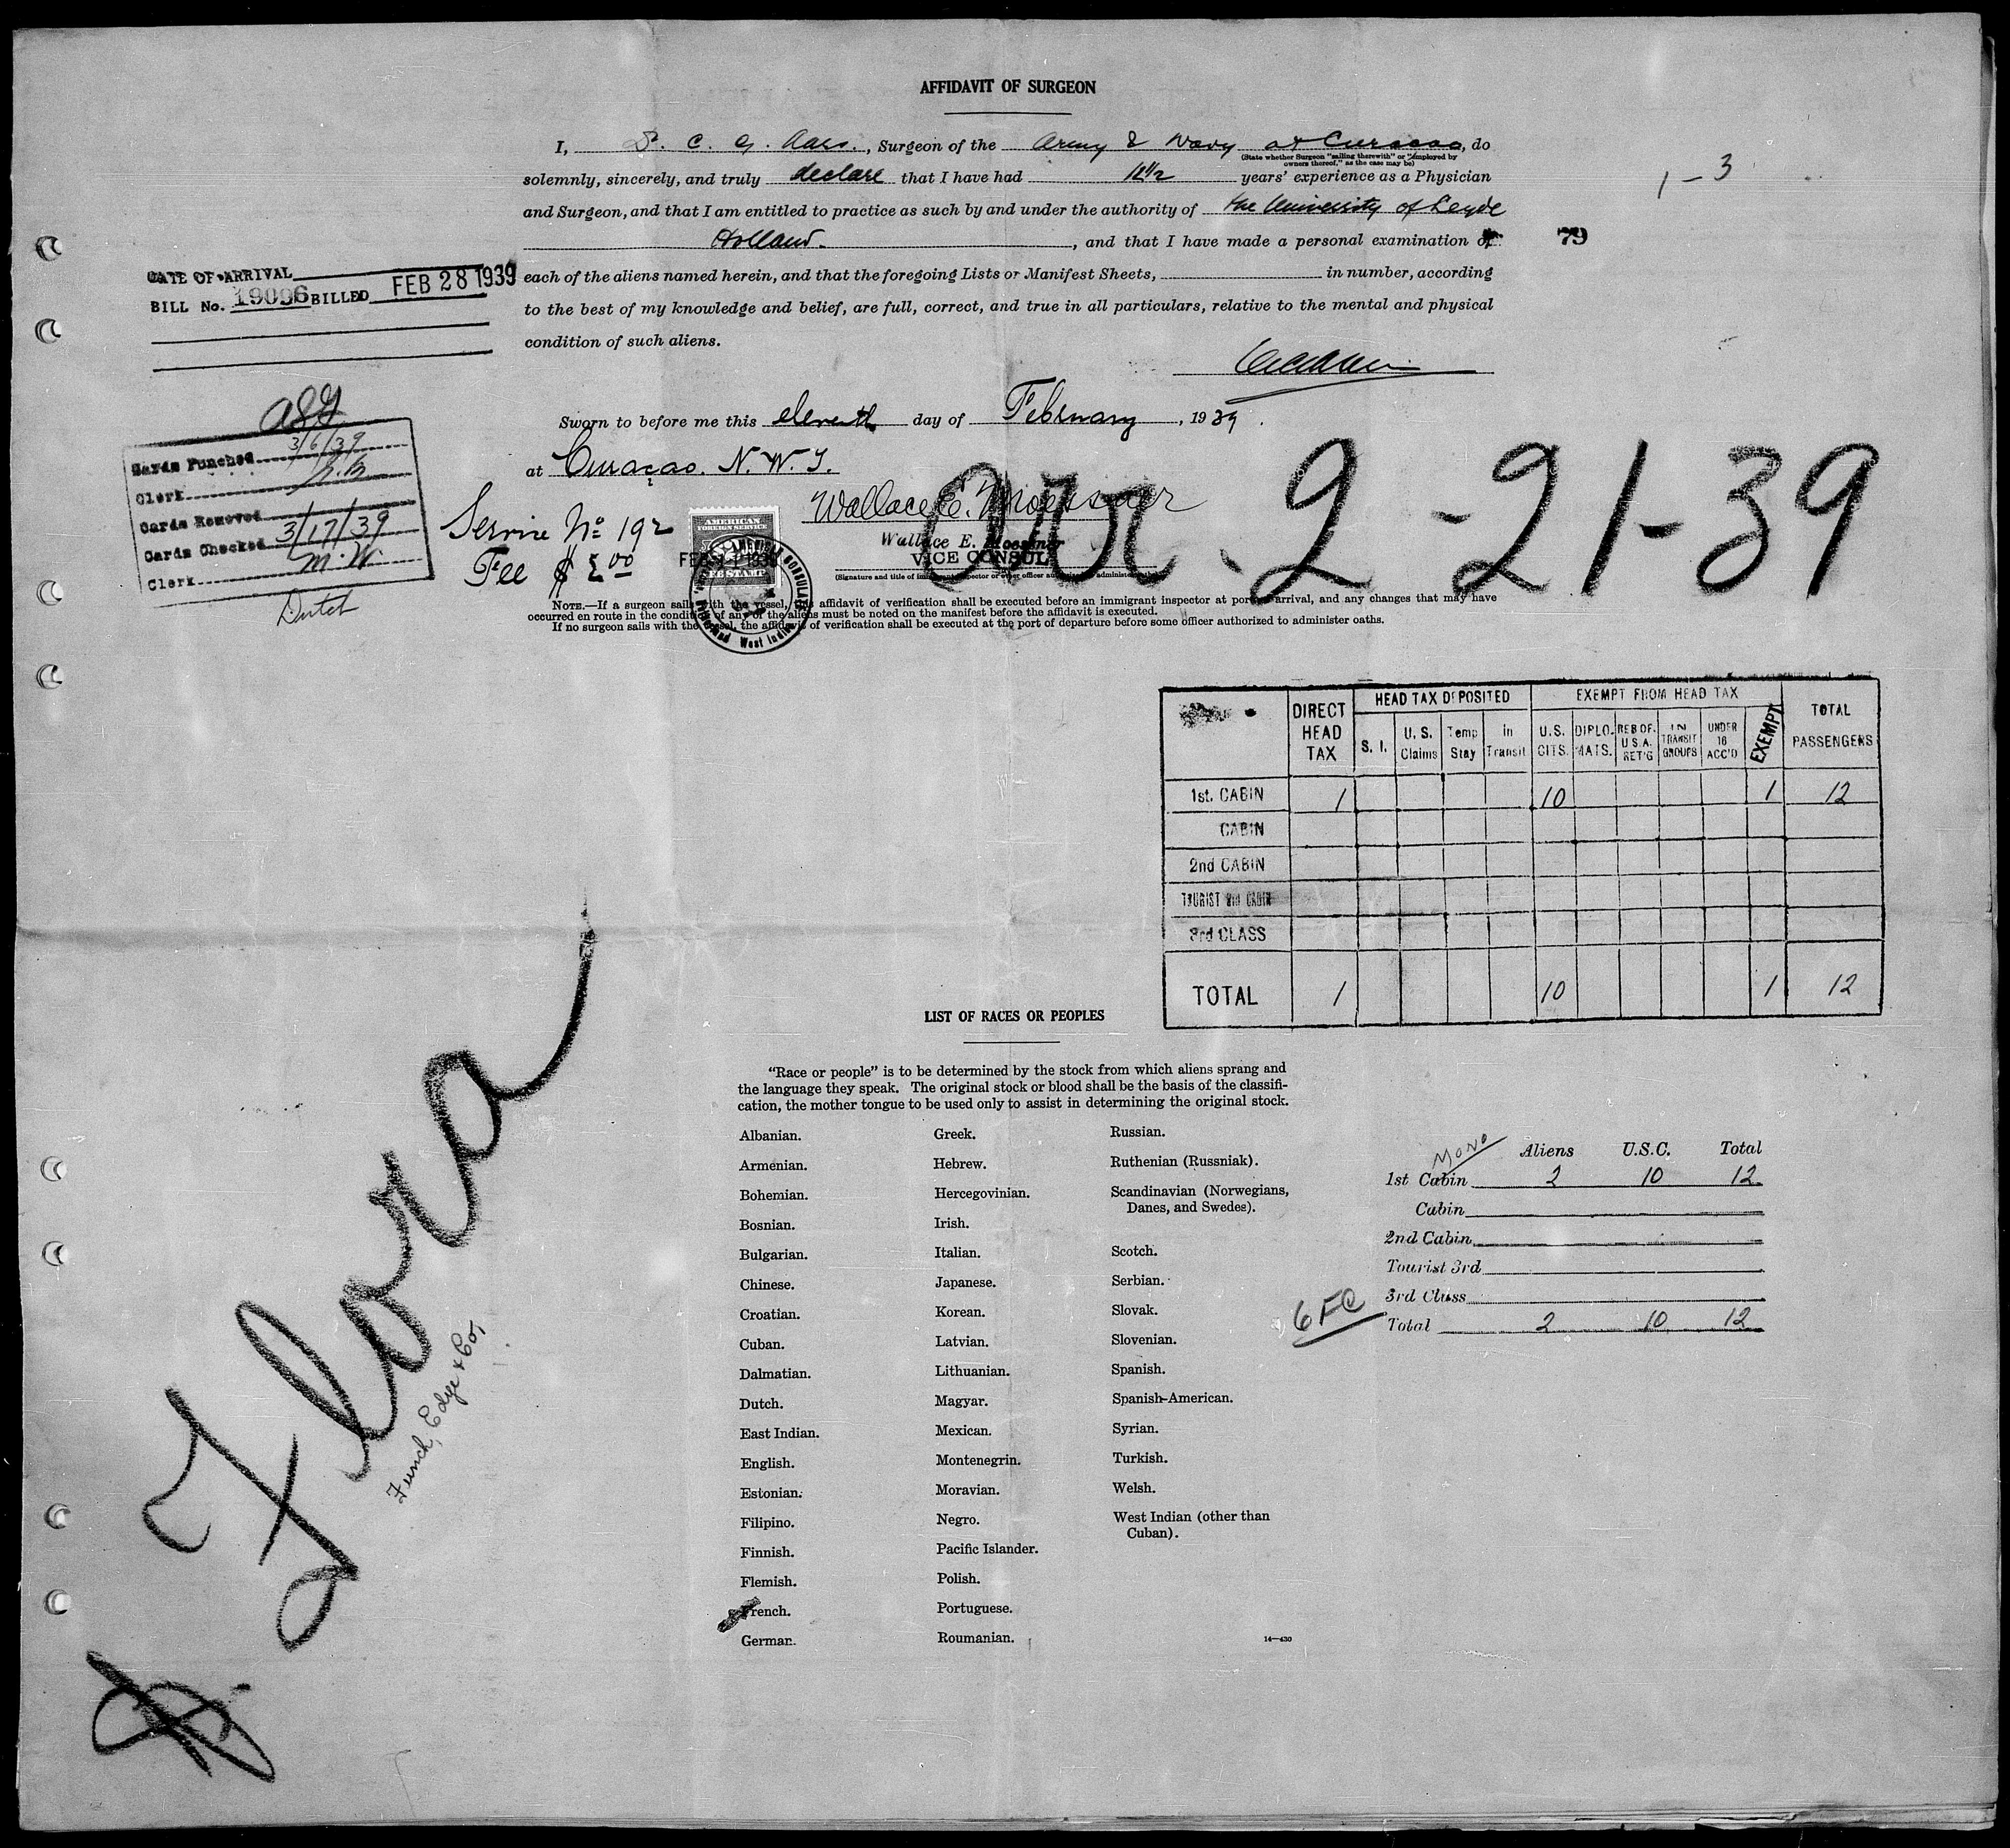 AFFIDAVIT OF SURGEON
I, C. G. , Surgeon of the Army & Navy at Curacao, do
(State whether Surgeon "sailing therewith" or "employed by
owners thereof," as the case may be)
solemnly, sincerely, and truly declare that I have had 12½ years' experience as a Physician
1 - 3
and Surgeon, and that I am entitled to practice as such by and under the authority of the University of Leyde
Holland. , and that I have made a personal examination of
79
each of the aliens named herein, and that the foregoing Lists or Manifest Sheets, in number, according
to the best of my knowledge and belief, are full, correct, and true in all particulars, relative to the mental and physical
condition of such aliens.
DATE OF ARRIVAL
BILL No. 19096 BILLED FEB 28 1939
Sworn to before me this eleventh day of February, 1939.
at Curaçao. N. W. I.
Cards Punched 3/6/39
Clerk
Cards Removed
Cards Checked 3/17/39
Clerk M. W.
Dutch
Service No 192
Fee $ 2.00
AMERICAN
FOREIGN SERVICE
FEE STAMP
AMERICAN CONSULATE
West Indies
Wallace E. Moessner
Wallace E. Moessner
VICE CONSUL
(Signature and title of immigrant inspector or other officer authorized to administer oaths)
Arr. 2-21-39
NOTE.—If a surgeon sails with the vessel, this affidavit of verification shall be executed before an immigrant inspector at port of arrival, and any changes that may have
occurred en route in the condition of any of the aliens must be noted on the manifest before the affidavit is executed.
If no surgeon sails with the vessel, the affidavit of verification shall be executed at the port of departure before some officer authorized to administer oaths.
DIRECT HEAD TAX HEAD TAX DEPOSITED EXEMPT FROM HEAD TAX TOTAL PASSENGERS
S. I. U. S. Claims Temp Stay In Transit U.S. CITS. DIPLO-MATS. REB OF. U S A. RET'G IN TRANSIT GROUPS UNDER 16 ACC'D EXEMPT
1st. CABIN 1 10 1 12
CABIN
2nd CABIN
TOURIST 3rd CABIN
3rd CLASS
TOTAL 1 10 1 12
LIST OF RACES OR PEOPLES
"Race or people" is to be determined by the stock from which aliens sprang and
the language they speak. The original stock or blood shall be the basis of the classifi-
cation, the mother tongue to be used only to assist in determining the original stock.
Albanian.
Armenian.
Bohemian.
Bosnian.
Bulgarian.
Chinese.
Croatian.
Cuban.
Dalmatian.
Dutch.
East Indian.
English.
Estonian.
Filipino.
Finnish.
Flemish.
French.
German.
Greek.
Hebrew.
Hercegovinian.
Irish.
Italian.
Japanese.
Korean.
Latvian.
Lithuanian.
Magyar.
Mexican.
Montenegrin.
Moravian.
Negro.
Pacific Islander.
Polish.
Portuguese.
Roumanian.
Russian.
Ruthenian (Russniak).
Scandinavian (Norwegians,
Danes, and Swedes).
Scotch.
Serbian.
Slovak.
Slovenian.
Spanish.
Spanish-American.
Syrian.
Turkish.
Welsh.
West Indian (other than
Cuban).
14—430
Mono
Aliens U.S.C. Total
1st Cabin 2 10 12
Cabin
2nd Cabin
Tourist 3rd
3rd Class
Total 2 10 12
6 FC
Flora
Funch, Edye & Co,